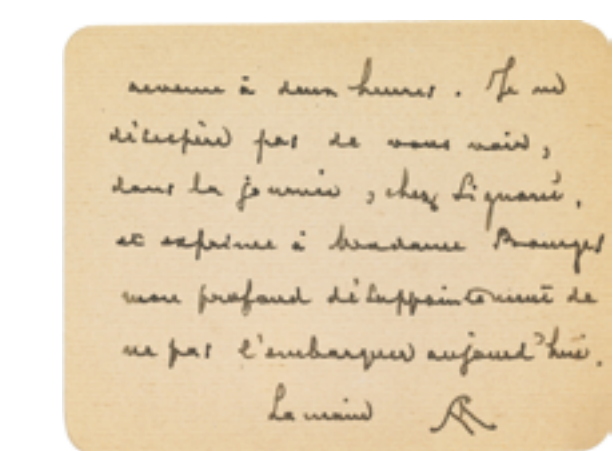 revenue à deux heures. Je ne
désespère pas de vous voir,
dans la journée, chez
et exprime à Madame Bourges
mon profond désappointement de
ne pas l'embarquer aujourd'hui.
La main